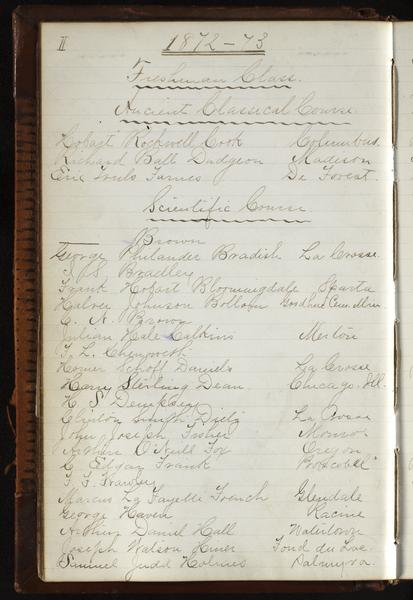 II
1872-73
Freshman Class.
Ancient Classical Course.
Hobart Rockwell Cook Columbus.
Richard Ball Dudgeon Madison
Eric Truls De Forest.
Scientific Course.
Brown
George Philander Bradish La Crosse.
S. Bradley
Frank Hobart Bloomingdale Sparta
Halvor Johnson Goodhue Minn.
C. N. Brown
Julian Hale Calkins Merton
T. L. Chenoweth
Homer Daniels La Crosse
Harry Sterling Dean Chicago, Ill.
H. S. Dempsey
Clinton Smith La Crosse
John Joseph Fisher Monroe
Arthur O'Neill Fox Oregon
G. Edgar Frank Boscobel
T. F. Frawley
Marcus La Fayette French Glendale
George Haven Racine
Arthur Daniel Hall Watertown
Joseph Watson Hiner Fond du Lac
Samuel Judd Holmes Palmyra.